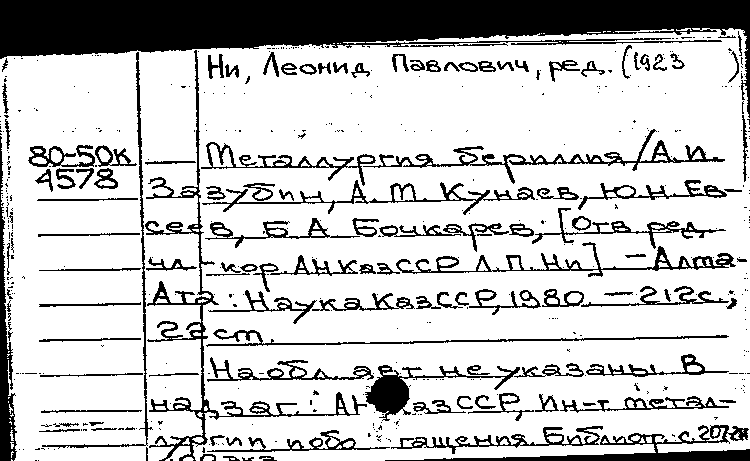 Ни, Леонид Павлович, ред. (1923 )
80-50к Металлургия бериллия / А.И.
4578 Зазубин, А. М. Кунаев, Ю.Н. Ев-
сеев, Б. А Бочкарев; [Отв ред.
чл-кор. АН КазССР Л.П. Ни] — Алма-
Ата: Наука КазССР, 1980. — 212с.;
22 cm.
На обл. авт. не указаны. В
надзаг.: АН КазССР, Ин-т метал-
лургии и обо гащения. Библиогр. с.